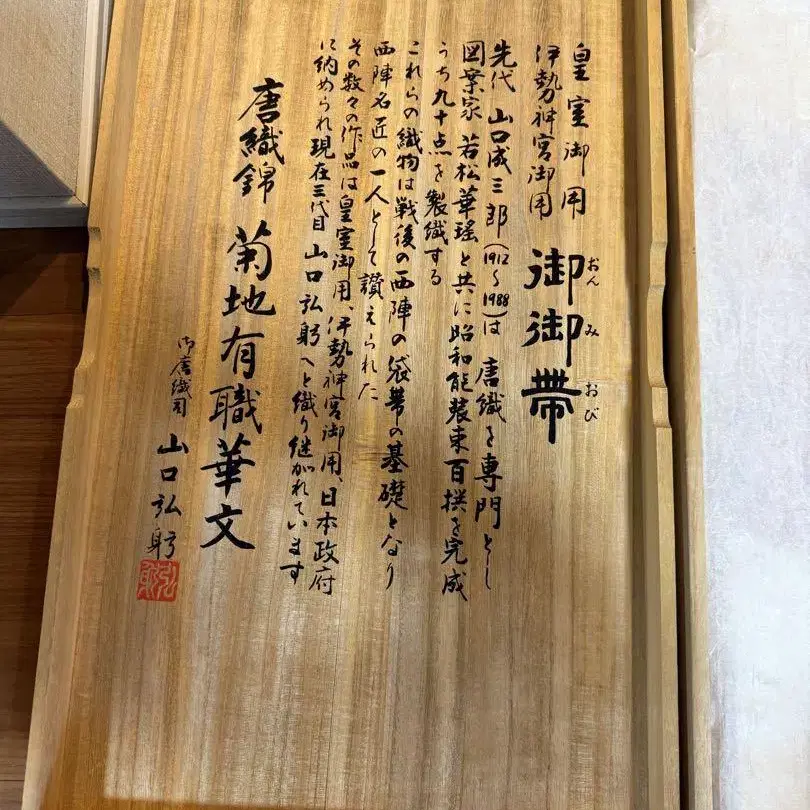 皇室御用
伊勢神宮御用
御御帯
おん み おび
先代 山口成三郎(1912〜1988)は 唐織を専門とし
図案家 若松華瑤と共に昭和能装束百撰を完成
うち九十点を製織する
これらの織物は戦後の西陣の袋帯の基礎となり
西陣名匠の一人として讃えられた
その数々の作品は皇室御用、伊勢神宮御用、日本政府
に納められ現在三代目 山口弘躬へと織り継がれています
唐織錦 菊地有職華文
御唐織司 山口弘躬
弘躬